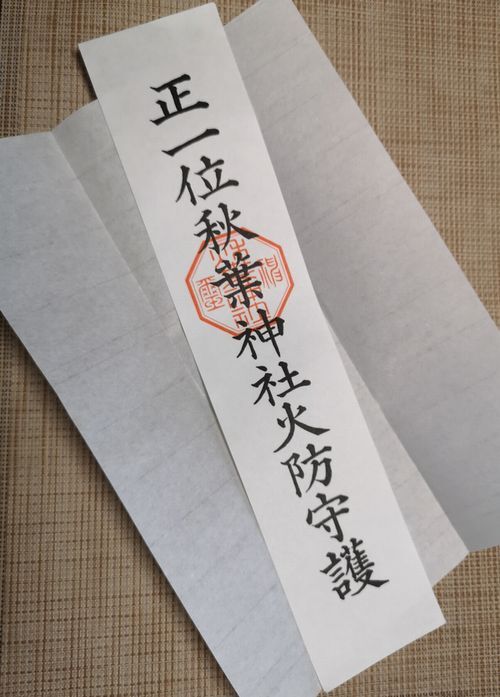 正一位秋葉神社火防守護